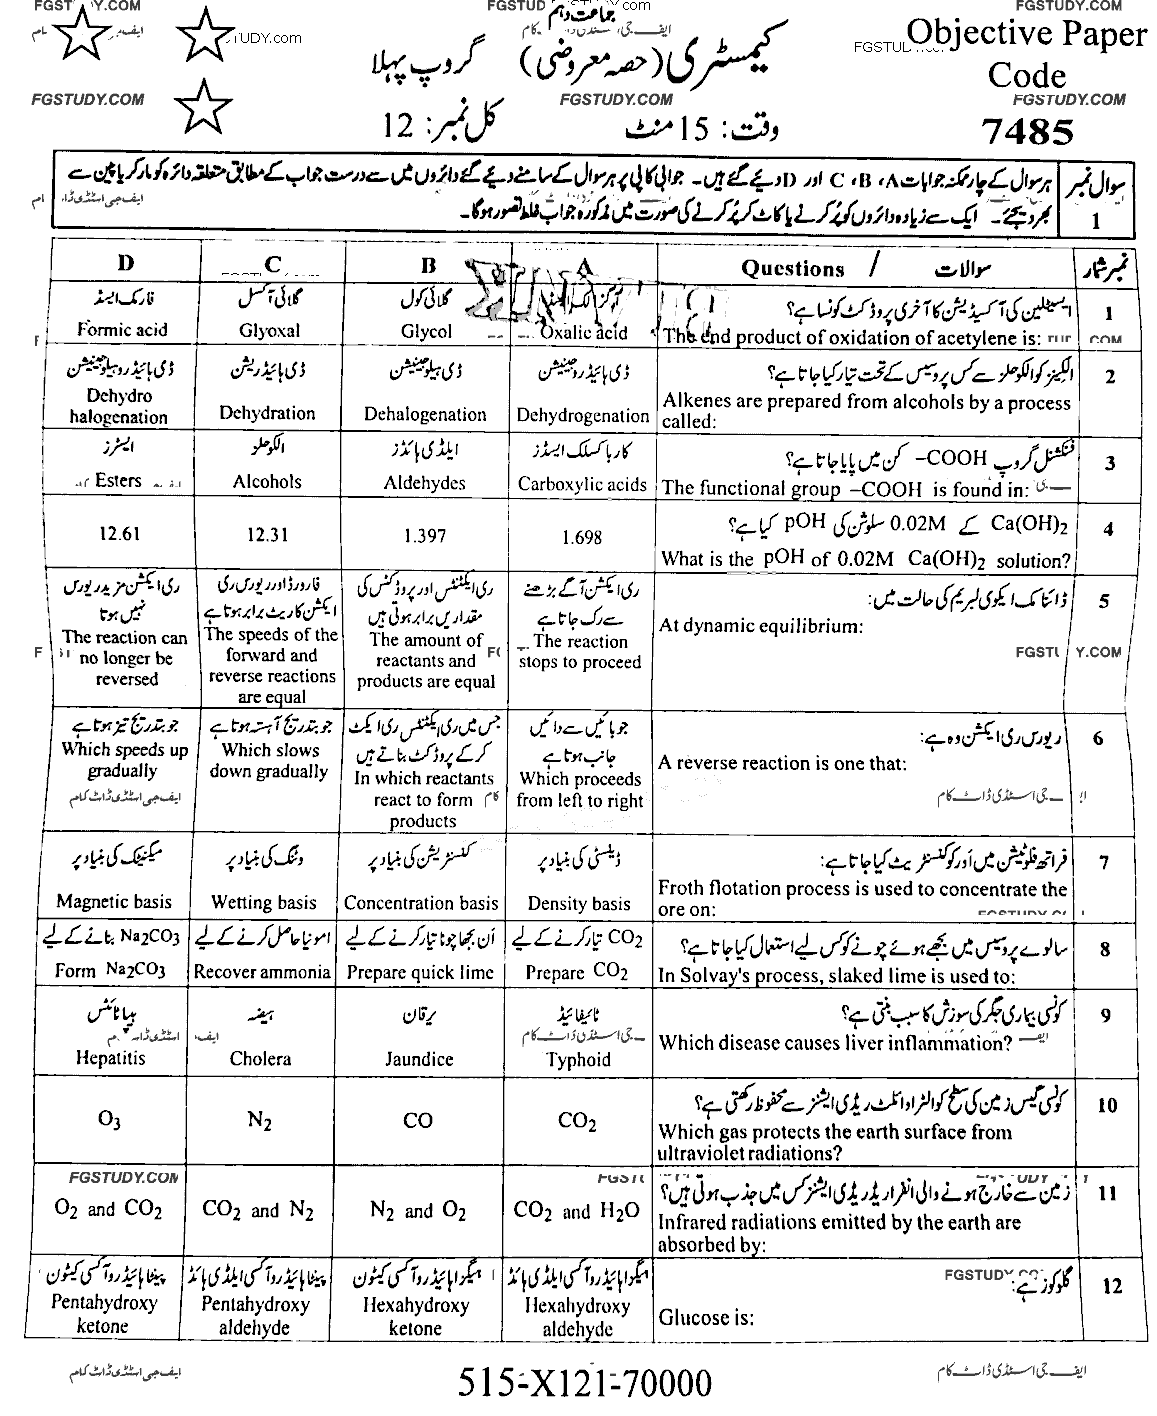 FGSTUDY.COM
جماعت دہم
Objective Paper
Code
7485
کیمسٹری (حصہ معروضی) گروپ پہلا
FGSTUDY.COM FGSTUDY.COM FGSTUDY.COM
وقت: 15 منٹ کل نمبر: 12
سوال نمبر 1
ہر سوال کے چار ممکنہ جوابات A، B، C اور D دیئے گئے ہیں۔ جوابی کاپی پر ہر سوال کے سامنے دیئے گئے دائروں میں سے درست جواب کے مطابق متعلقہ دائرہ کو مارکر یا پین سے
بھر دیجئے۔ ایک سے زیادہ دائروں کو پُر کرنے یا کاٹ کر پُر کرنے کی صورت میں مذکورہ جواب غلط تصور ہوگا۔
D C B A Questions / سوالات نمبر شمار
1 ایسیٹلین کی آکسیڈیشن کا آخری پروڈکٹ کونسا ہے؟
The end product of oxidation of acetylene is:
آگزیلک ایسڈ
Oxalic acid
گلائی کول
Glycol
گلائی آکسل
Glyoxal
فارمک ایسڈ
Formic acid
2 الکینز کو الکوحلز سے کس پروسیس کے تحت تیار کیا جاتا ہے؟
Alkenes are prepared from alcohols by a process
called:
ڈی ہائیڈروجینیشن
Dehydrogenation
ڈی ہیلوجینیشن
Dehalogenation
ڈی ہائیڈریشن
Dehydration
ڈی ہائیڈروہیلوجینیشن
Dehydro
halogenation
3 فنکشنل گروپ –COOH کن میں پایا جاتا ہے؟
The functional group –COOH is found in:
کاربا کسلک ایسڈز
Carboxylic acids
ایلڈی ہائڈز
Aldehydes
الکوحلز
Alcohols
ایسٹرز
Esters
4 Ca(OH)2 کے 0.02M سلوشن کی pOH کیا ہے؟
What is the pOH of 0.02M Ca(OH)2 solution?
1.698
1.397
12.31
12.61
5 ڈائنامک ایکوی لبریم کی حالت میں:
At dynamic equilibrium:
FGSTUDY.COM
ری ایکشن آگے بڑھنے
سے رک جاتا ہے
The reaction
stops to proceed
ری ایکٹنٹس اور پروڈکٹس کی
مقداریں برابر ہوتی ہیں
The amount of
reactants and
products are equal
فارورڈ اور ریورس ری
ایکشن کا ریٹ برابر ہوتا ہے
The speeds of the
forward and
reverse reactions
are equal
ری ایکشن مزید ریورس
نہیں ہوتا
The reaction can
no longer be
reversed
6 ریورس ری ایکشن وہ ہے:
A reverse reaction is one that:
جو بائیں سے دائیں
جانب ہوتا ہے
Which proceeds
from left to right
جس میں ری ایکٹنٹس ری ایکٹ
کر کے پروڈکٹ بناتے ہیں
In which reactants
react to form
products
جو بتدریج آہستہ ہوتا ہے
Which slows
down gradually
جو بتدریج تیز ہوتا ہے
Which speeds up
gradually
ایف جی اسٹڈی ڈاٹ کام
7 فراتھ فلوٹیشن میں اَور کو کنسنٹریٹ کیا جاتا ہے:
Froth flotation process is used to concentrate the
ore on:
ڈینسٹی کی بنیاد پر
Density basis
کنسنٹریشن کی بنیاد پر
Concentration basis
وٹنگ کی بنیاد پر
Wetting basis
میگنیٹک کی بنیاد پر
Magnetic basis
8 سالوے پروسیس میں بجھے ہوئے چونے کو کس لیے استعمال کیا جاتا ہے؟
In Solvay's process, slaked lime is used to:
CO2 تیار کرنے کے لیے
Prepare CO2
اَن بجھا چونا تیار کرنے کے لیے
Prepare quick lime
امونیا حاصل کرنے کے لیے
Recover ammonia
Na2CO3 بنانے کے لیے
Form Na2CO3
9 کونسی بیماری جگر کی سوزش کا سبب بنتی ہے؟
Which disease causes liver inflammation?
ٹائیفائیڈ
Typhoid
یرقان
Jaundice
ہیضہ
Cholera
ہیپاٹائٹس
Hepatitis
10 کونسی گیس زمین کی سطح کو الٹراوائلٹ ریڈی ایشنز سے محفوظ رکھتی ہے؟
Which gas protects the earth surface from
ultraviolet radiations?
CO2
CO
N2
O3
11 زمین سے خارج ہونے والی انفراریڈ ریڈی ایشنز کس میں جذب ہوتی ہیں؟
Infrared radiations emitted by the earth are
absorbed by:
CO2 and H2O
N2 and O2
CO2 and N2
FGSTUDY.COM
O2 and CO2
12 گلوکوز ہے:
Glucose is:
ہیگزاہائیڈروآکسی ایلڈی ہائڈ
Hexahydroxy
aldehyde
ہیگزاہائیڈروآکسی کیٹون
Hexahydroxy
ketone
پینٹاہائیڈروآکسی ایلڈی ہائڈ
Pentahydroxy
aldehyde
پینٹاہائیڈروآکسی کیٹون
Pentahydroxy
ketone
ایف جی اسٹڈی ڈاٹ کام
515-X121-70000
ایف جی اسٹڈی ڈاٹ کام